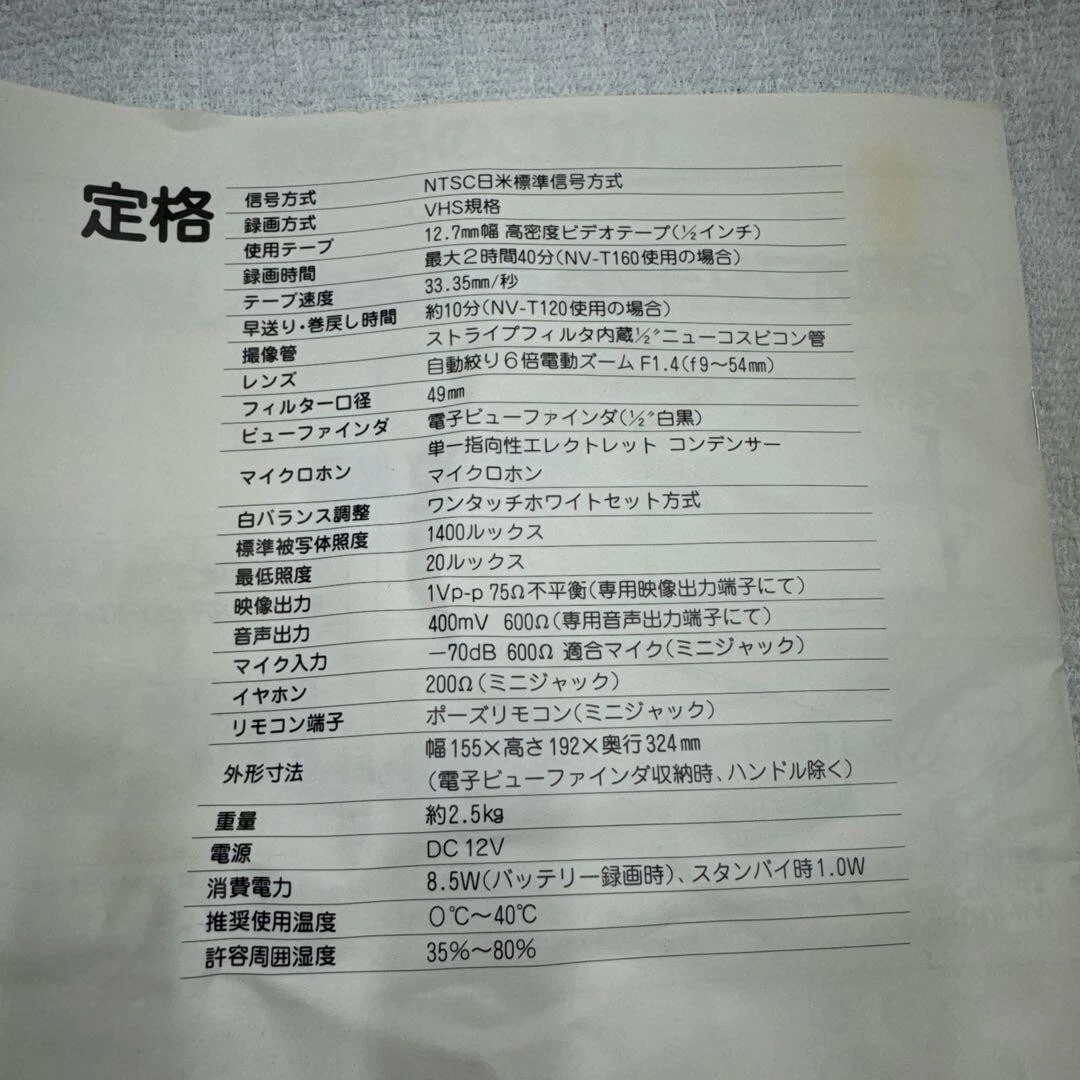 定格
信号方式 NTSC日米標準信号方式
録画方式 VHS規格
使用テープ 12.7mm幅 高密度ビデオテープ(½インチ)
録画時間 最大2時間40分(NV-T160使用の場合)
テープ速度 33.35mm/秒
早送り・巻戻し時間 約10分(NV-T120使用の場合)
撮像管 ストライプフィルタ内蔵½"ニューコスビコン管
レンズ 自動絞り6倍電動ズーム F1.4(f9〜54mm)
フィルター口径 49mm
ビューファインダ 電子ビューファインダ(½"白黒)
マイクロホン 単一指向性エレクトレット コンデンサー
マイクロホン
白バランス調整 ワンタッチホワイトセット方式
標準被写体照度 1400ルックス
最低照度 20ルックス
映像出力 1Vp-p 75Ω不平衡(専用映像出力端子にて)
音声出力 400mV 600Ω(専用音声出力端子にて)
マイク入力 −70dB 600Ω 適合マイク(ミニジャック)
イヤホン 200Ω(ミニジャック)
リモコン端子 ポーズリモコン(ミニジャック)
外形寸法 幅155×高さ192×奥行324mm
(電子ビューファインダ収納時、ハンドル除く)
重量 約2.5kg
電源 DC 12V
消費電力 8.5W(バッテリー録画時)、スタンバイ時1.0W
推奨使用温度 0℃〜40℃
許容周囲湿度 35%〜80%